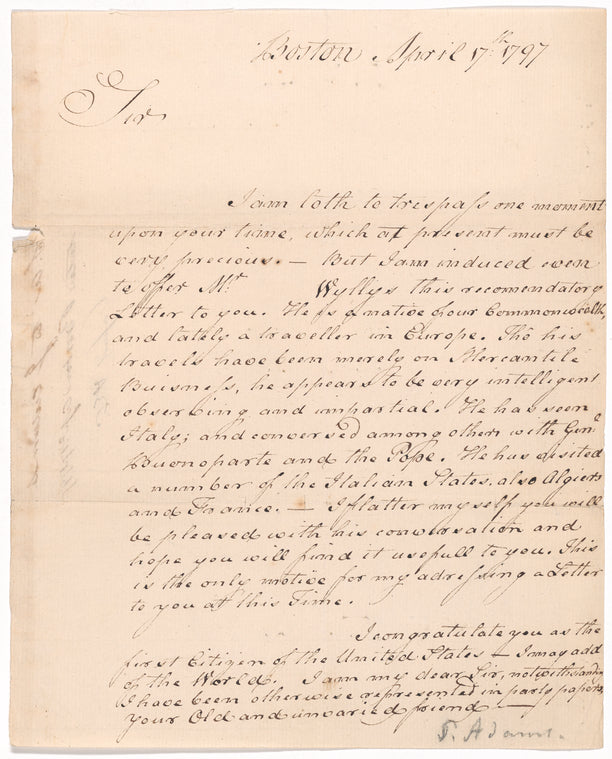 Boston April 17th 1797
Sir
I am loth to trespass one moment
upon your time, which at present must be
very precious. — But I am induced even
to offer Mr Wyllys this recomendatory
Letter to you. He is a native of our Commonwealth,
and lately a traveller in Europe. Tho his
travels have been merely on Mercantile
Buisness, he appears to be very intelligent
observing and impartial. He has seen
Italy; and conversed among others with Genl
Buonoparte and the Pope. He has visited
a number of the Italian States, also Algiers
and France. — I flatter my self you will
be pleased with his conversation and
hope you will find it usefull to you. This
is the only motive for my adressing a Letter
to you at this Time.
I congratulate you as the
first Citizen of the United States — I may add
of the World. I am my dear Sir, notwithstanding
I have been otherwise represented in party papers,
your Old and unvaried friend —
S. Adams.